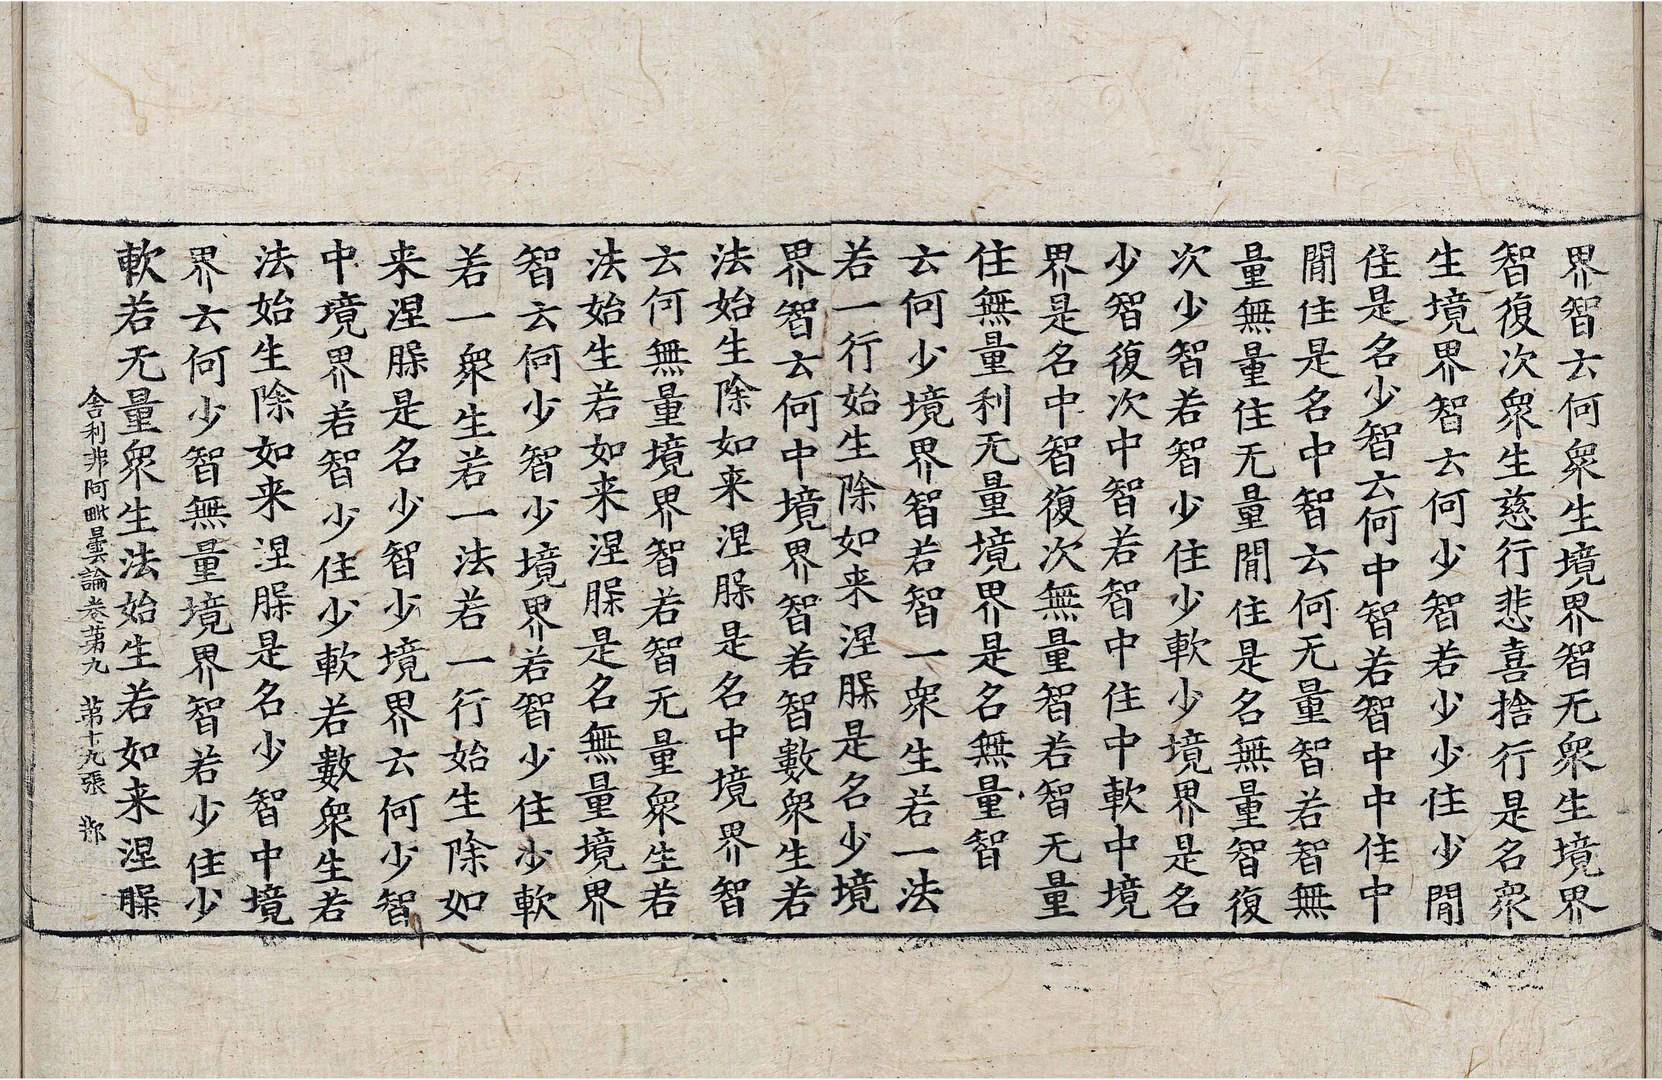 界智云何衆生境界智无衆生境界
智復次衆生慈行悲喜捨行是名衆
生境界智云何少智若少少住少閒
住是名少智云何中智若智中中住中
閒住是名中智云何无量智若智無
量無量住无量閒住是名無量智復
次少智若智少住少軟少境界是名
少智復次中智若智中住中軟中境
界是名中智復次無量智若智无量
住無量利无量境界是名無量智
云何少境界智若智一衆生若一法
若一行始生除如来涅槃是名少境
界智云何中境界智若智數衆生若
法始生除如来涅槃是名中境界智
云何無量境界智若智无量衆生若
法始生若如来涅槃是名無量境界
智云何少智少境界若智少住少軟
若一衆生若一法若一行始生除如
来涅槃是名少智少境界云何少智
中境界若智少住少軟若數衆生若
法始生除如来涅槃是名少智中境
界云何少智無量境界智若少住少
軟若无量衆生法始生若如来涅槃
舍利非阿毗曇論卷第九 第十九張